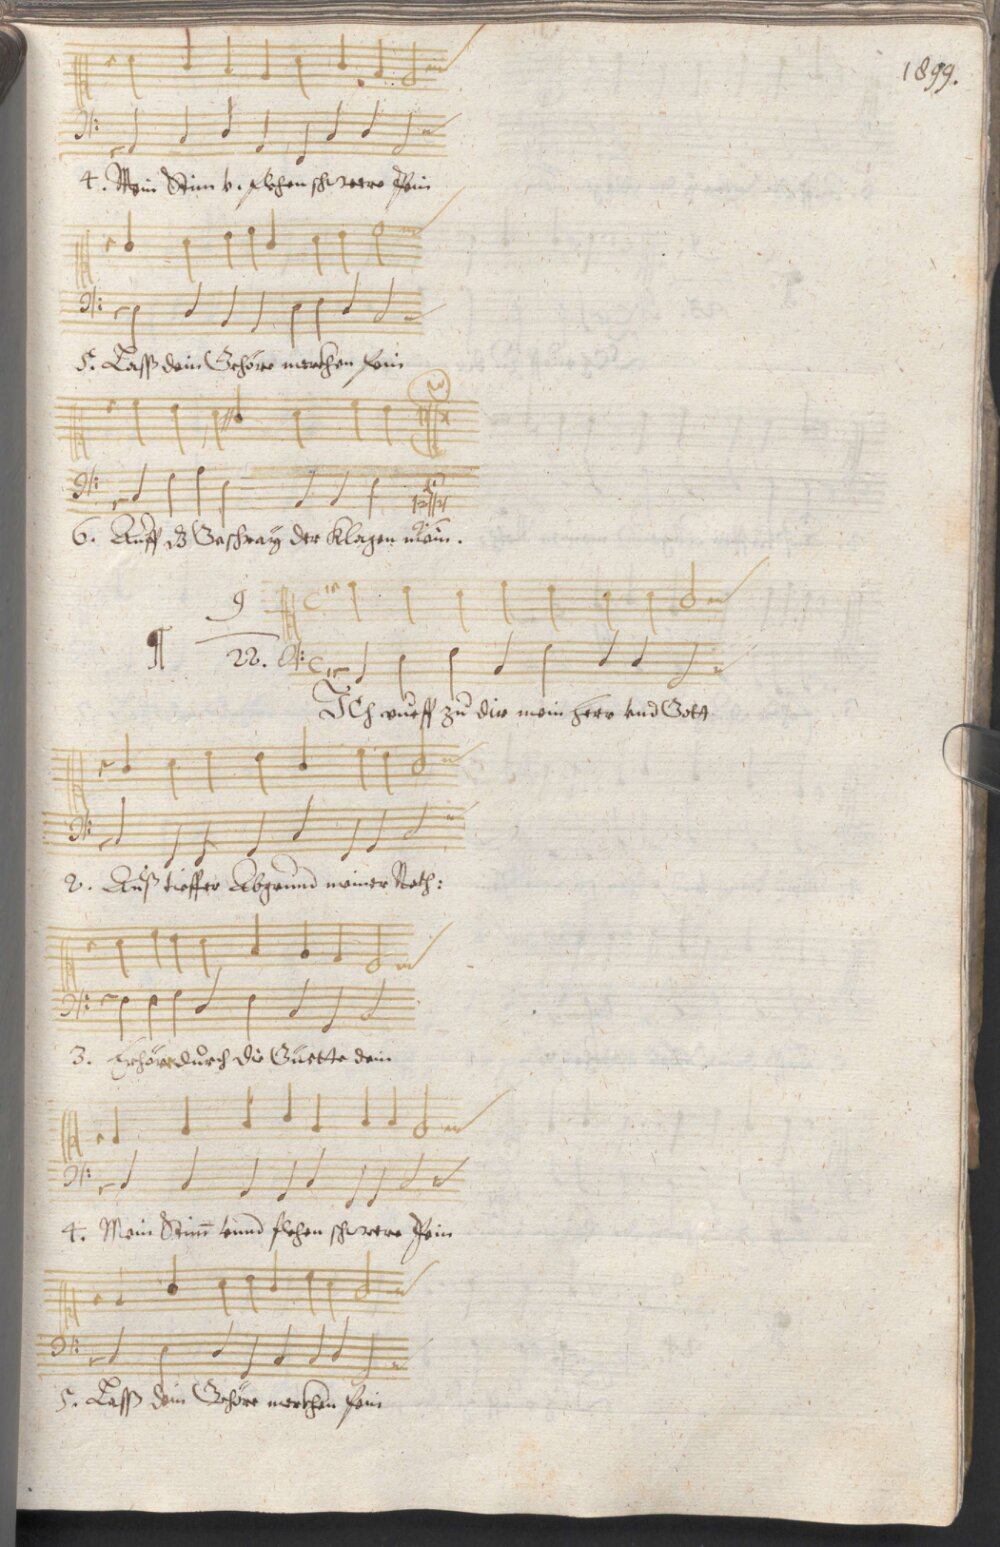 1899.
4. Mein Stim v. flehen schwere Pein
5. Lass dein Gehöre merckhen fein
6. Auff dz Geschray der Klagen mein.
9
¶ 22.
ICh rueff zu dir mein Herr vnd Gott
2. Auß tieffer Abgrund meiner Noth:
3. Erhöre durch die Guette dein
4. Mein Stim̄ vnnd flehen schwere Pein
5. Lass dein Gehöre merckhen fein